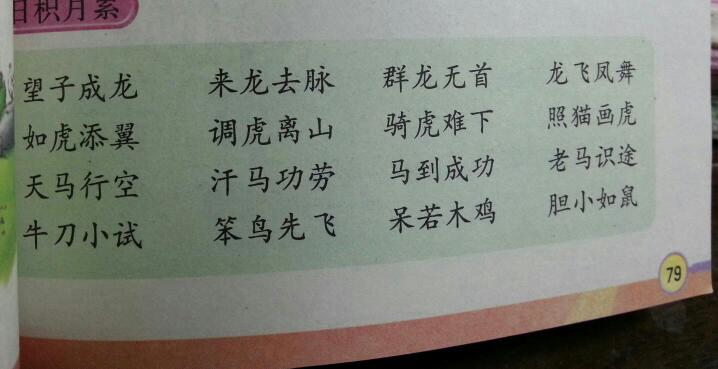 日积月累
望子成龙 来龙去脉 群龙无首 龙飞凤舞
如虎添翼 调虎离山 骑虎难下 照猫画虎
天马行空 汗马功劳 马到成功 老马识途
牛刀小试 笨鸟先飞 呆若木鸡 胆小如鼠
79